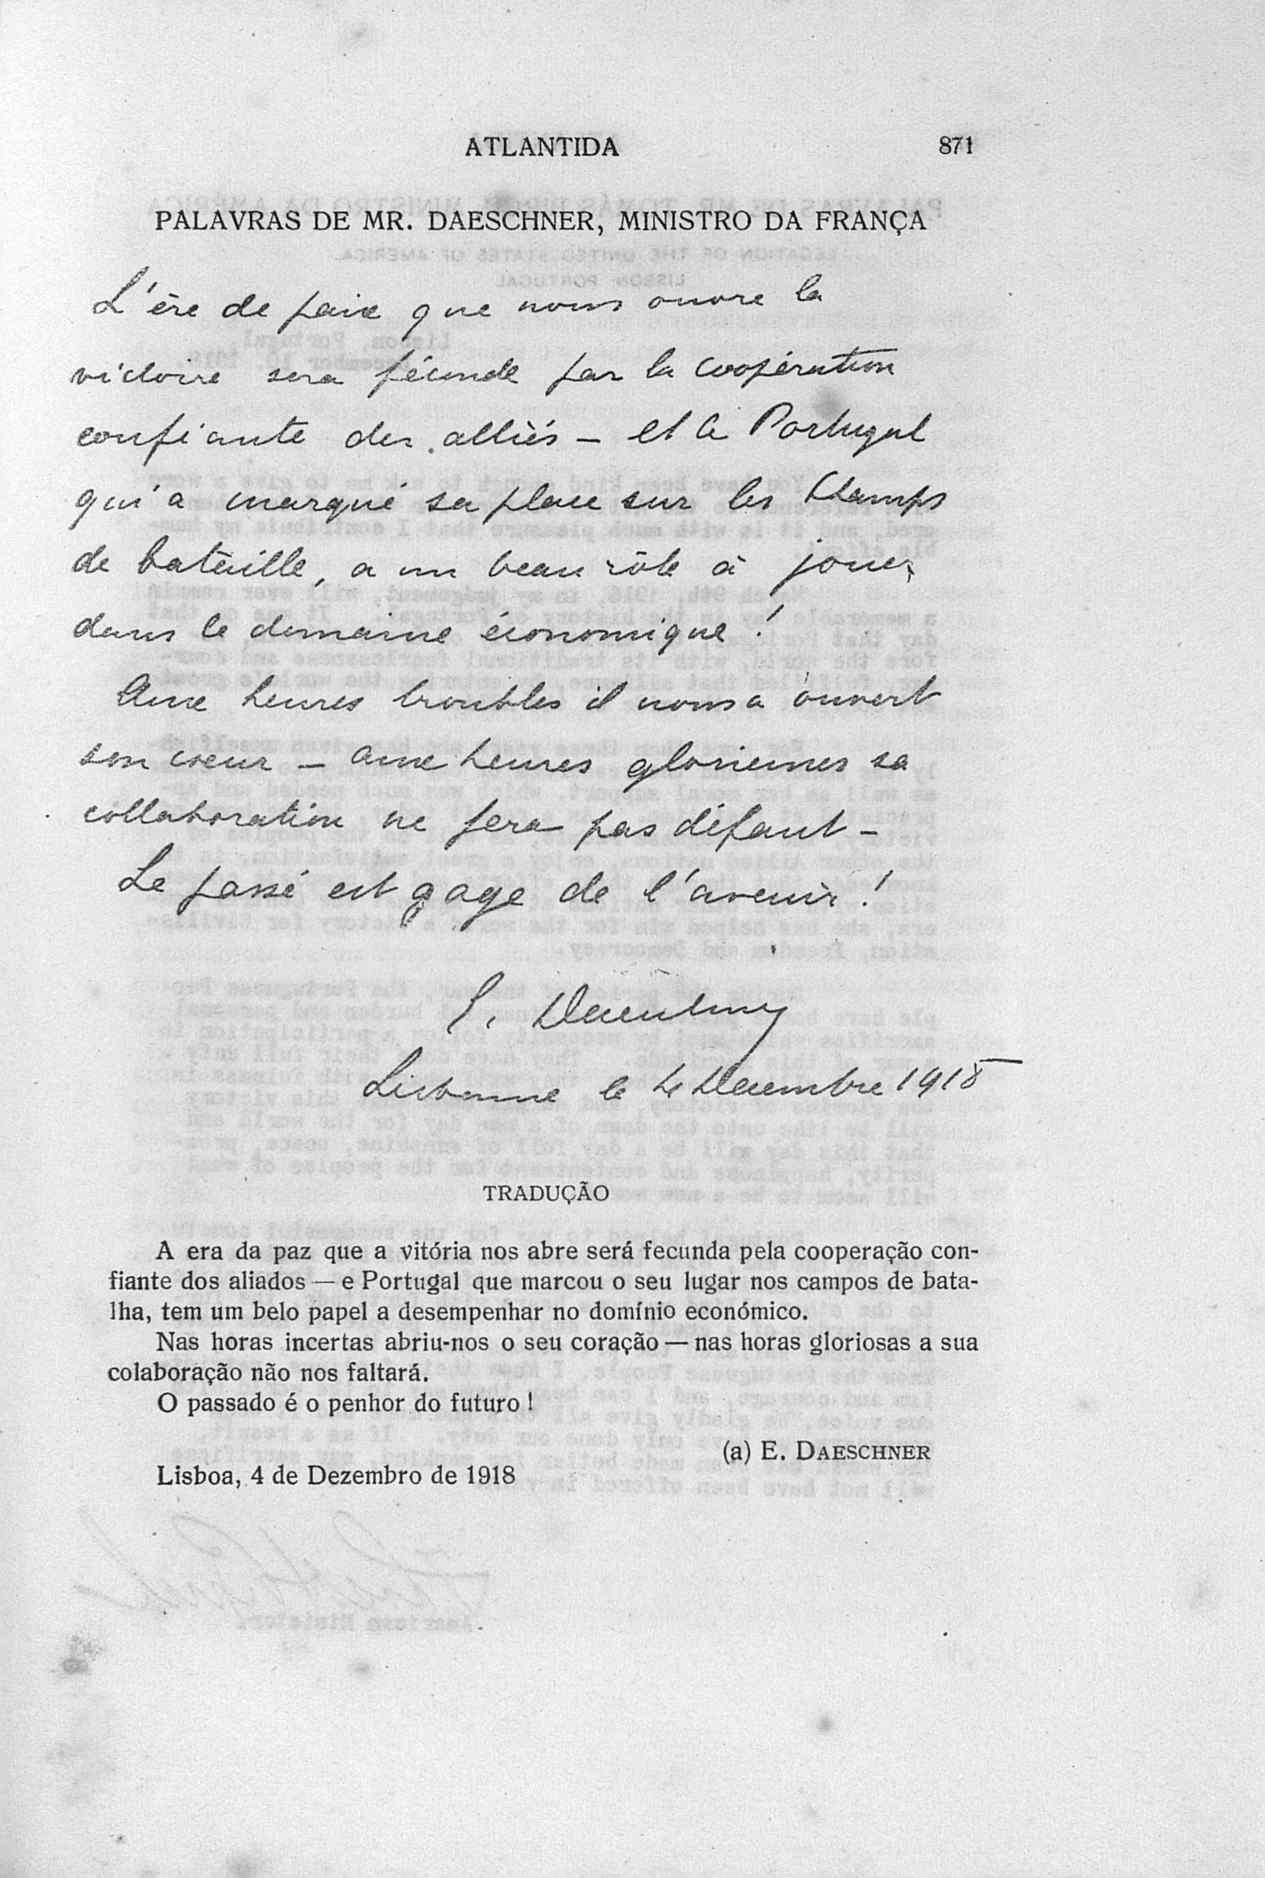 ATLANTIDA 871
PALAVRAS DE MR. DAESCHNER, MINISTRO DA FRANÇA
L'ère de paix que nous ouvre la
victoire sera féconde par la coopération
confiante des alliés — et le Portugal
qui a marqué sa place sur les champs
de bataille, a un beau rôle à jouer
dans le domaine économique !
Aux heures troubles il nous a ouvert
son cœur — aux heures glorieuses sa
collaboration ne fera pas défaut —
Le passé est gage de l'avenir !
E. Daeschner
Lisbonne le 4 Décembre 1918
TRADUÇÃO
A era da paz que a vitória nos abre será fecunda pela cooperação con-
fiante dos aliados — e Portugal que marcou o seu lugar nos campos de bata-
lha, tem um belo papel a desempenhar no domínio económico.
Nas horas incertas abriu-nos o seu coração — nas horas gloriosas a sua
colaboração não nos faltará.
O passado é o penhor do futuro !
(a) E. DAESCHNER
Lisboa, 4 de Dezembro de 1918